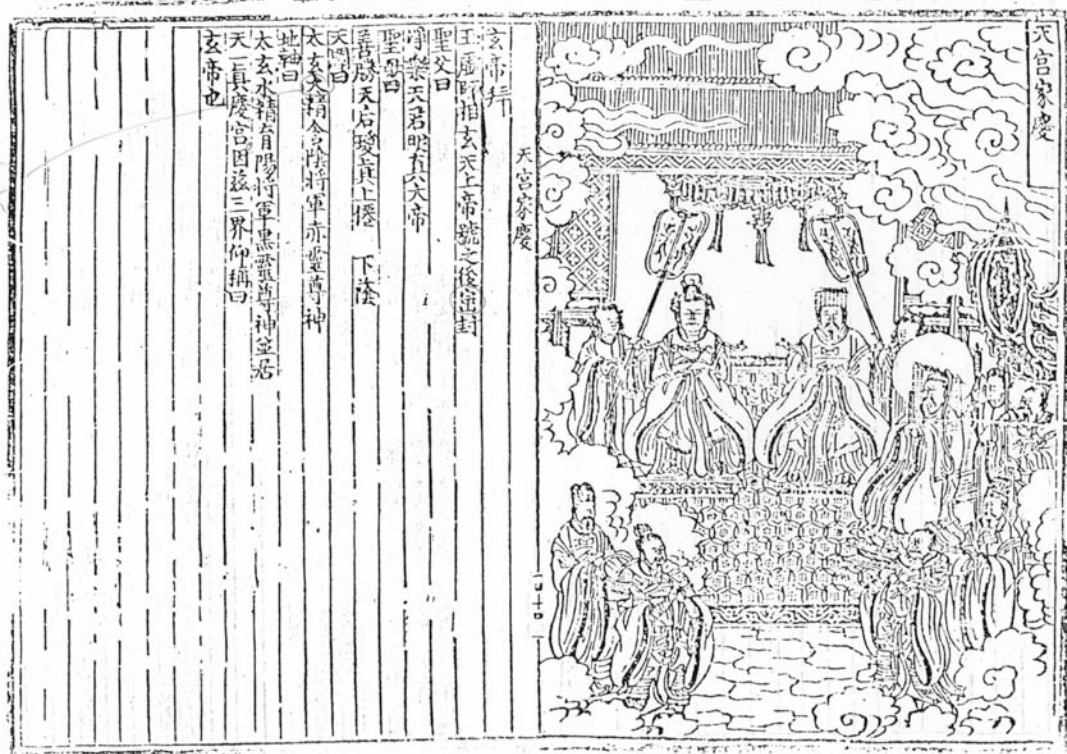 天宮家慶
天宮家慶
玄帝拜
玉虛師相玄天上帝號之後封
聖父曰
淨樂天君明真大帝
聖母曰
善勝天后瓊真上僊 下蔭
天關曰
太玄火精含陰將軍赤靈尊神
地軸曰
太玄水精育陽將軍黑靈尊神並居
天一真慶宮因茲三界仰稱曰
玄帝也